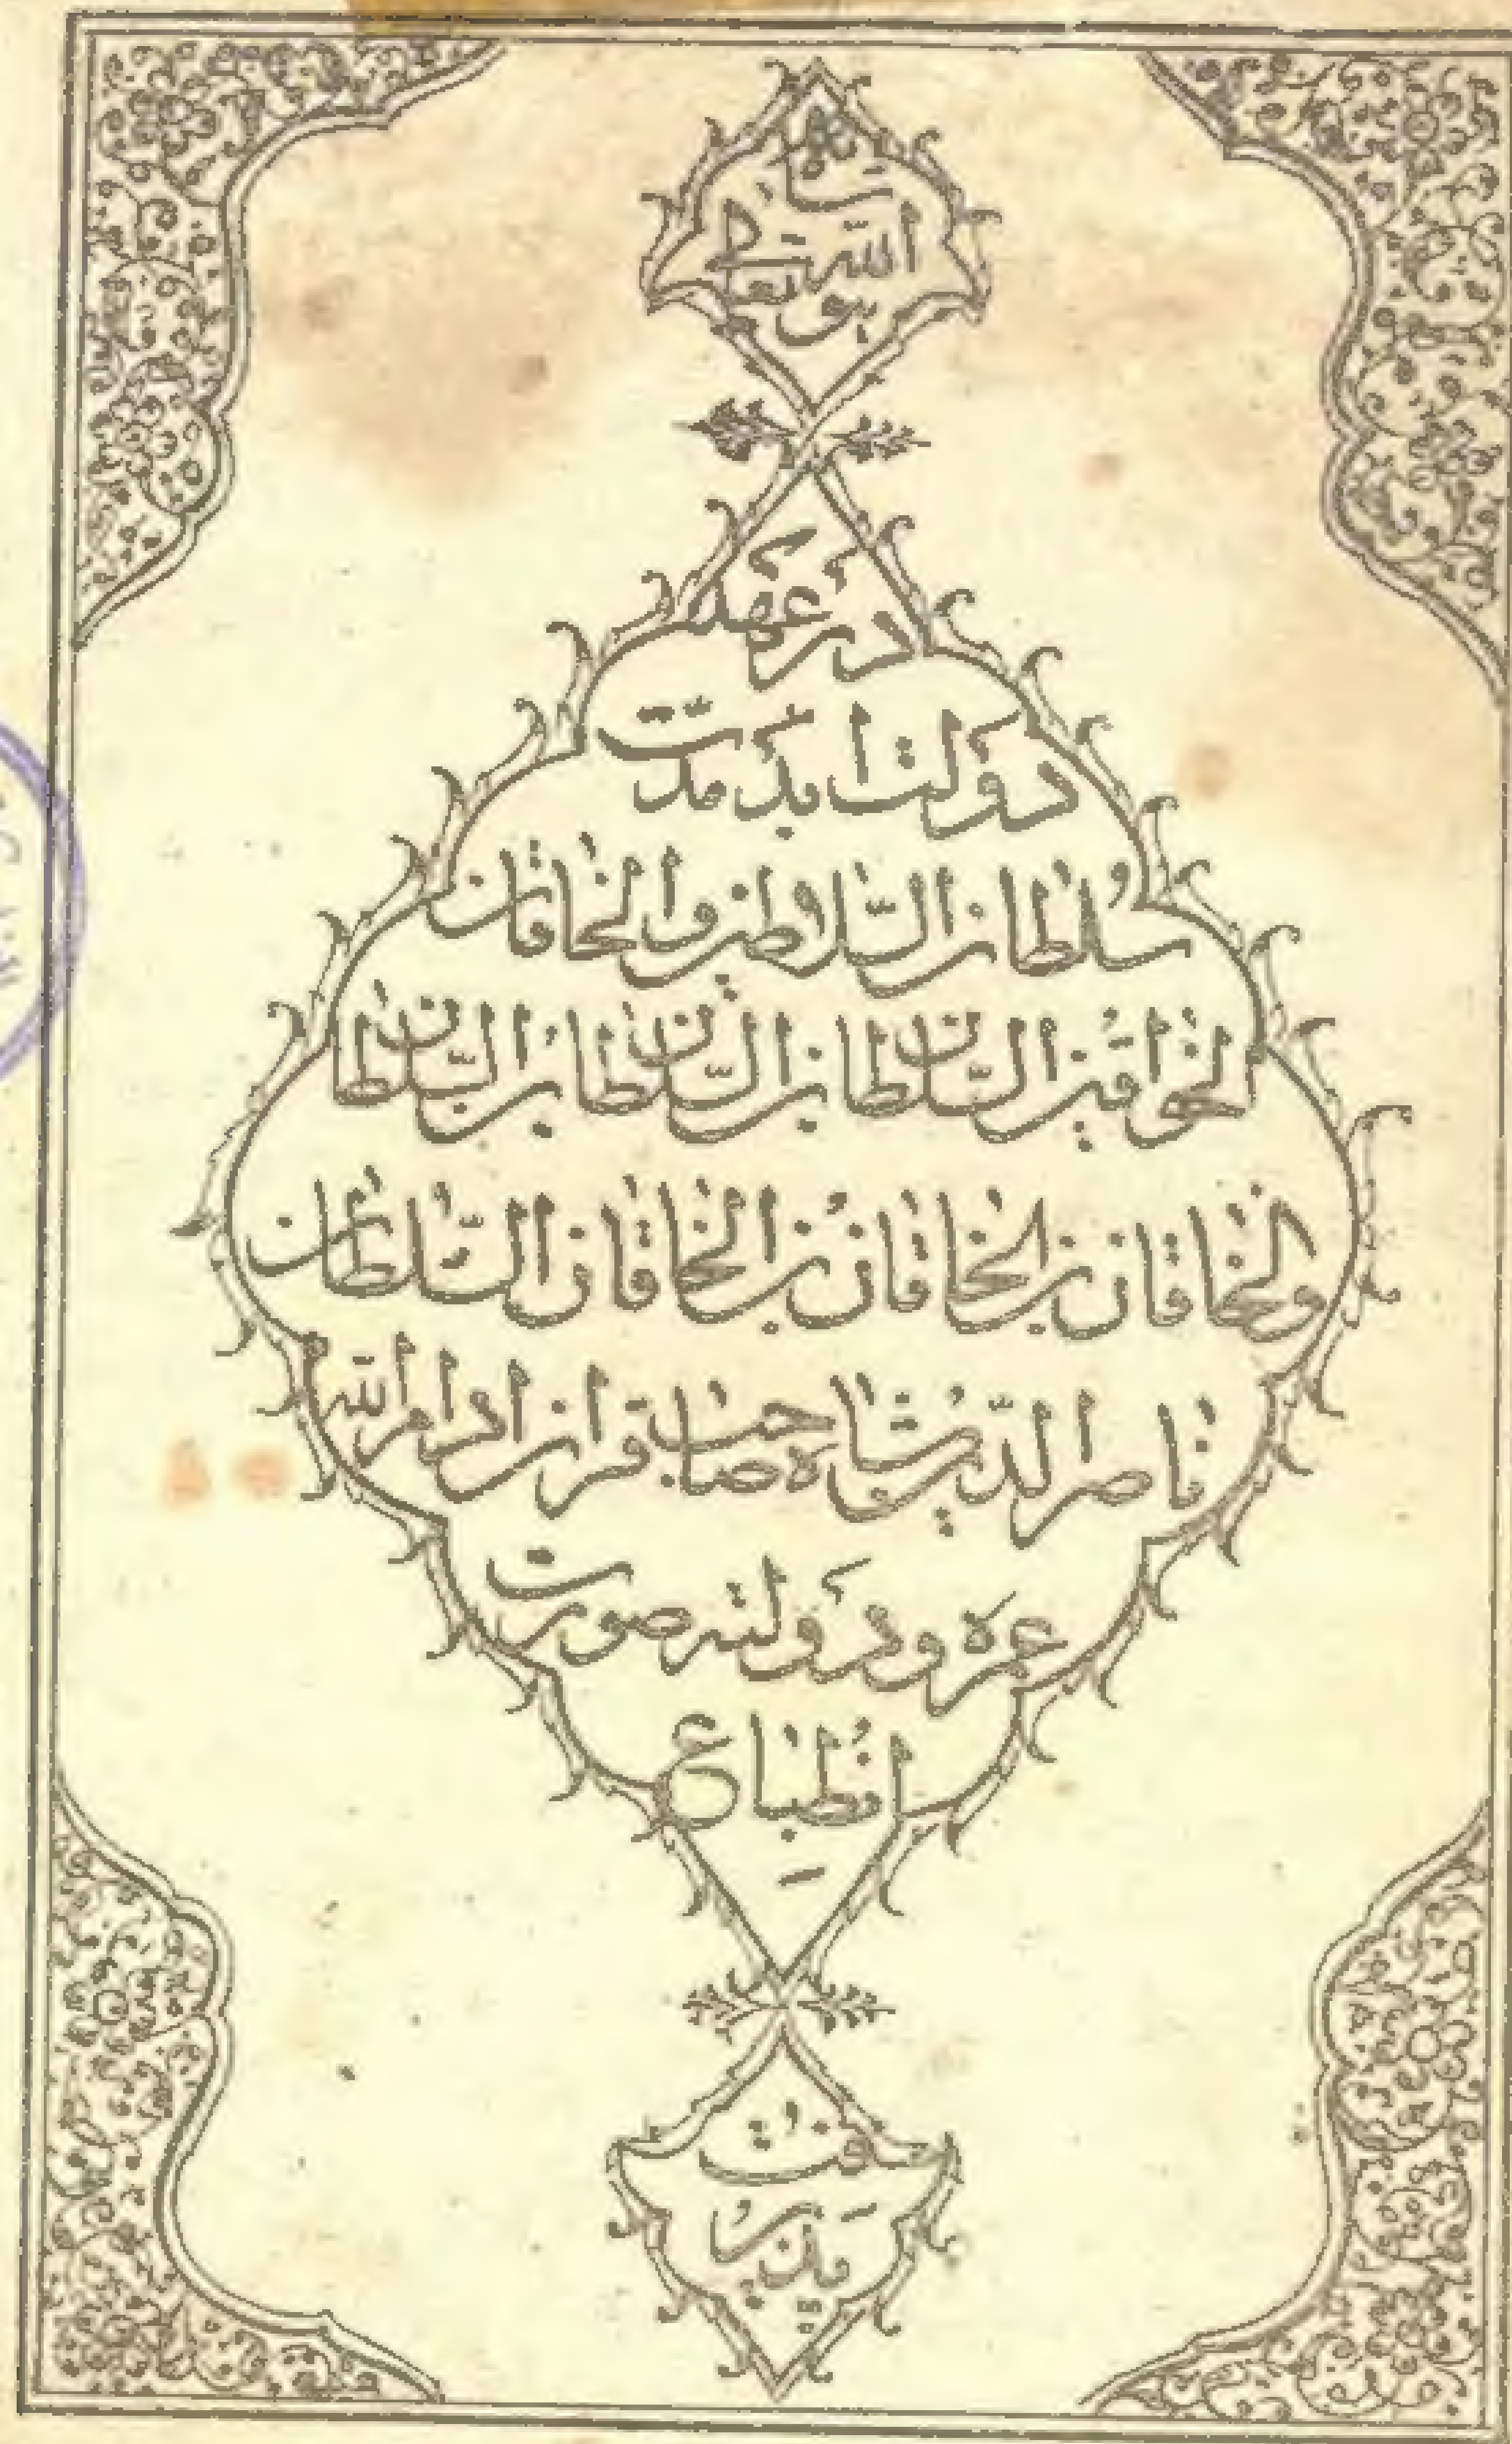 هو
الله تعالی
شانه
در عهد
دولت ابد مدت
سلطان السلاطین و الخاقان
الخواقین السلطان بن السلطان بن السلطان
والخاقان بن الخاقان بن الخاقان السلطان
ناصر الدین شاه صاحب قران ادام الله
عزه و دولته صورت
انطباع
یافت